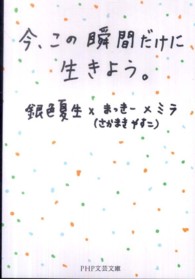 今、この瞬間だけに
生きよう。
銀色夏生×まっきー×ミラ
(さかまきやすこ)
PHP文芸文庫